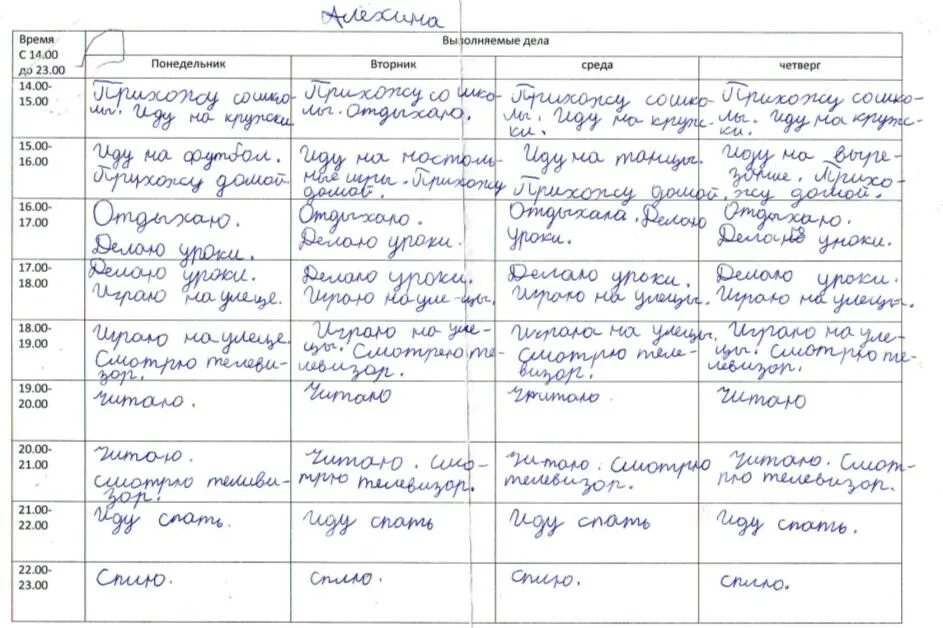 Алехина
Время
С 14.00
до 23.00
Выполняемые дела
Понедельник
Вторник
среда
четверг
14.00-
15.00
Прихожу со шко-
лы. Иду на кружки
Прихожу со шко-
лы. Отдыхаю.
Прихожу со шко-
лы. Иду на круж-
ки.
Прихожу со шко-
лы. Иду на круж-
ки.
15.00-
16.00
Иду на футбол.
Прихожу домой.
Иду на настоль-
ные игры. Прихожу
домой.
Иду на танцы.
Прихожу домой.
Иду на выре-
зание. Прихо-
жу домой.
16.00-
17.00
Отдыхаю.
Делаю уроки.
Отдыхаю.
Делаю уроки.
Отдыхала. Делаю
уроки.
Отдыхаю.
Делаю уроки.
17.00-
18.00
Делаю уроки.
Играю на улеце.
Делаю уроки.
Играю на уле-цы.
Делаю уроки.
Играю на улецы.
Делаю уроки.
Играю на улецы.
18.00-
19.00
Играю на улеце.
Смотрю телеви-
зор.
Играю на уле-
цы. Смотрею те-
левизор.
Играла на улецы.
Смотрю теле-
визор.
Играю на уле-
цы. Смотрю те-
левизор.
19.00-
20.00
Читаю.
Читаю
Читаю.
Читаю
20.00-
21.00
Читаю.
смотрю телеви-
зор.
Читаю. Смо-
трю телевизор.
Читаю. Смотрю
телевизор.
Читаю. Смот-
рю телевизор.
21.00-
22.00
Иду спать.
Иду спать
Иду спать
Иду спать.
22.00-
23.00
Сплю.
сплю.
сплю.
сплю.